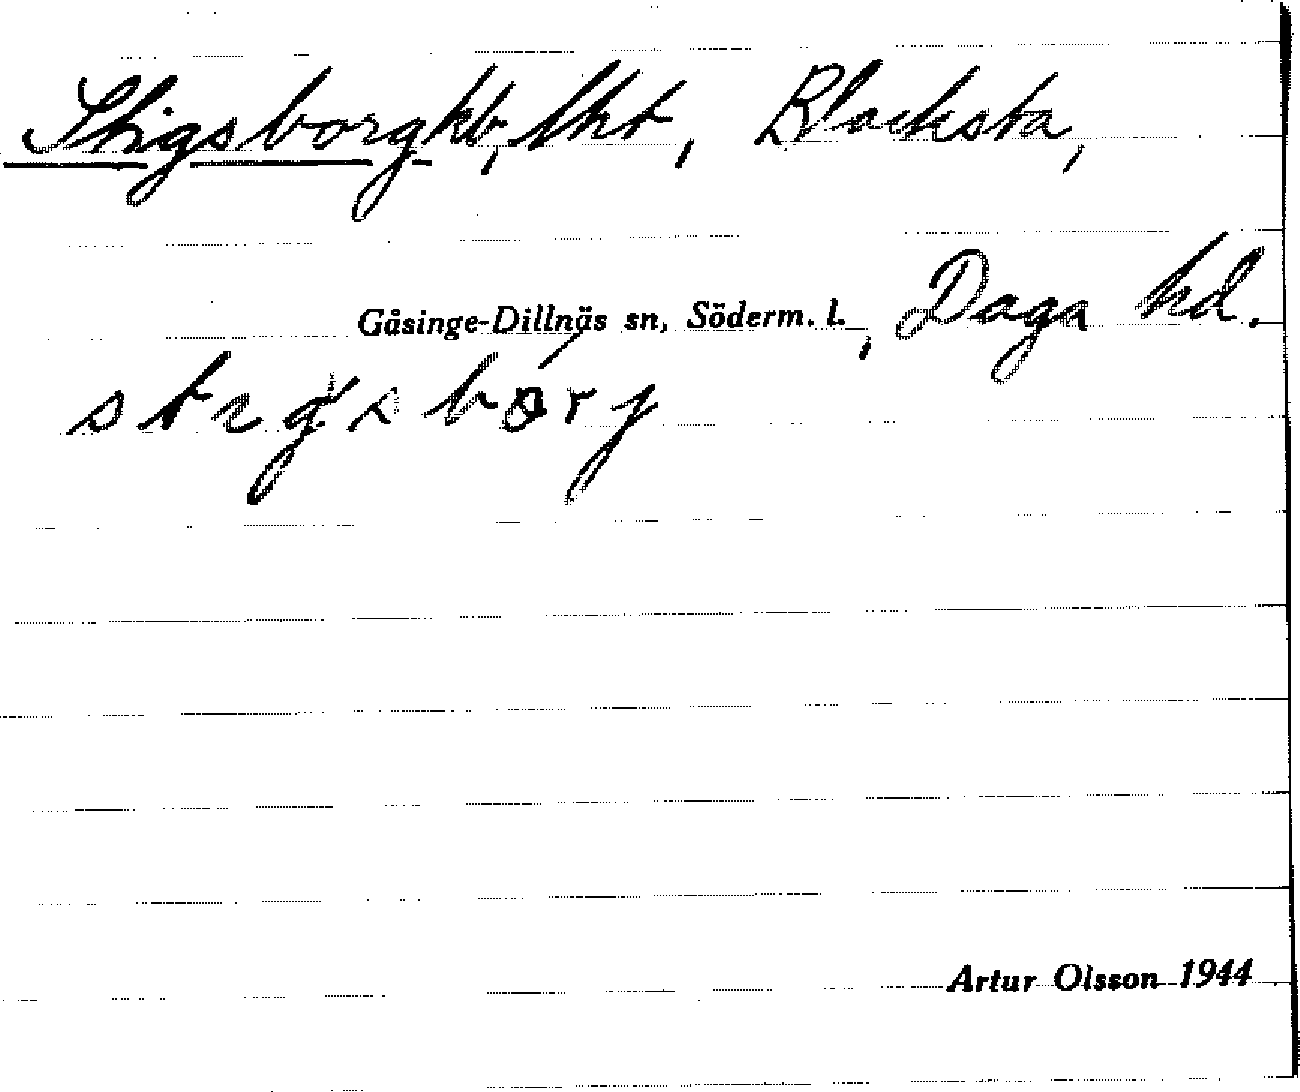 Stigsborg kb, lht, Blacksta,
Gåsinge-Dillnäs sn, Söderm. l., Daga hd.
Artur Olsson 1944